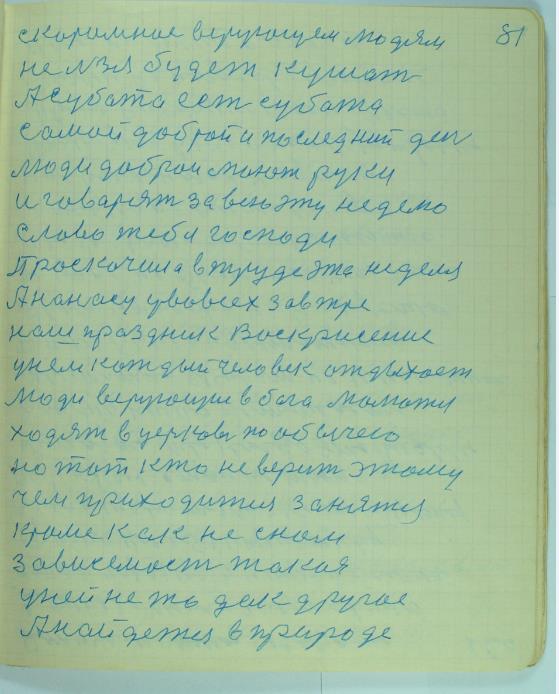 81
скоромное верующем людям
не лзя будет кушат
А субата ест субата
самой доброй и последний ден
люди доброи моют руки
и говарят за всю эту неделю
слово тебя господи
Проскочила в труде эта неделя
А нанасу у во всех завтре
наш праздник Воскрисение
унем кождый человек отдыхоет
люди верующии в бога молотя
ходят в церковь по обычею
но тот кто не верит этому
чем приходится занятся
кроме как не сном
зависемост такая
уней не то дак другое
А найдется в природе